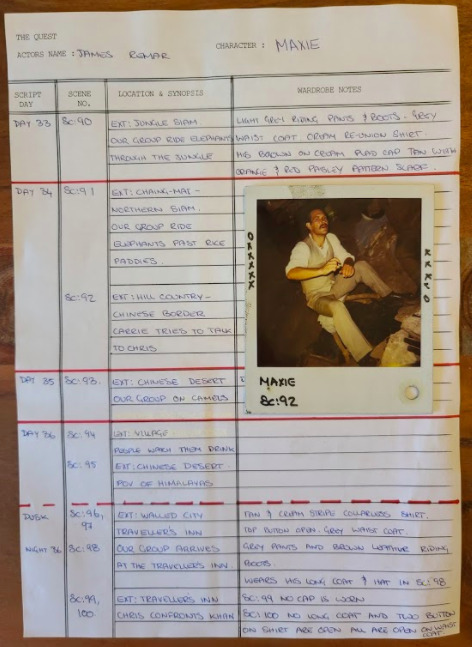 THE QUEST
ACTORS NAME : JAMES REMAR CHARACTER : MAXIE
SCRIPT DAY SCENE NO. LOCATION & SYNOPSIS WARDROBE NOTES
DAY 33 SC:90 EXT: JUNGLE SIAM LIGHT GREY RIDING PANTS & BOOTS. GREY
OUR GROUP RIDE ELEPHANT WAIST COAT. CREAM RE-UNION SHIRT.
THROUGH THE JUNGLE HIS BROWN ON CREAM PLAD CAP TAN WITH
ORANGE & RED PAISLEY PATTERN SCARF.
DAY 34 SC:91 EXT: CHAING-MAI -
NORTHERN SIAM.
OUR GROUP RIDE
ELEPHANTS PAST RICE
PADDIES.
SC:92 EXT: HILL COUNTRY -
CHINESE BORDER
CARRIE TRIES TO TALK
TO CHRIS
MAXIE
SC:92
DAY 35 SC:93. EXT: CHINESE DESERT
OUR GROUP ON CAMELS
DAY 36 SC:94 VILLAGE.
PEOPLE WATCH THEM DRINK
SC:95 EXT: CHINESE DESERT.
POV OF HIMALAYAS
DUSK SC:96, EXT: WALLED CITY TAN & CREAM STRIPE COLLARLESS SHIRT.
97 TRAVELLER'S INN TOP BUTTON OPEN. GREY WAIST COAT.
NIGHT 36 SC:98 OUR GROUP ARRIVES GREY PANTS AND BROWN LEATHER RIDING
AT THE TRAVELLER'S INN. BOOTS.
WEARS HIS LONG COAT & HAT IN SC:98
SC:99, EXT: TRAVELLERS INN SC:99 NO CAP IS WORN
100. CHRIS CONFRONTS KHAN SC:100 NO LONG COAT AND TWO BUTTON
ON SHIRT ARE OPEN ALL ARE OPEN ON WAIST
COAT